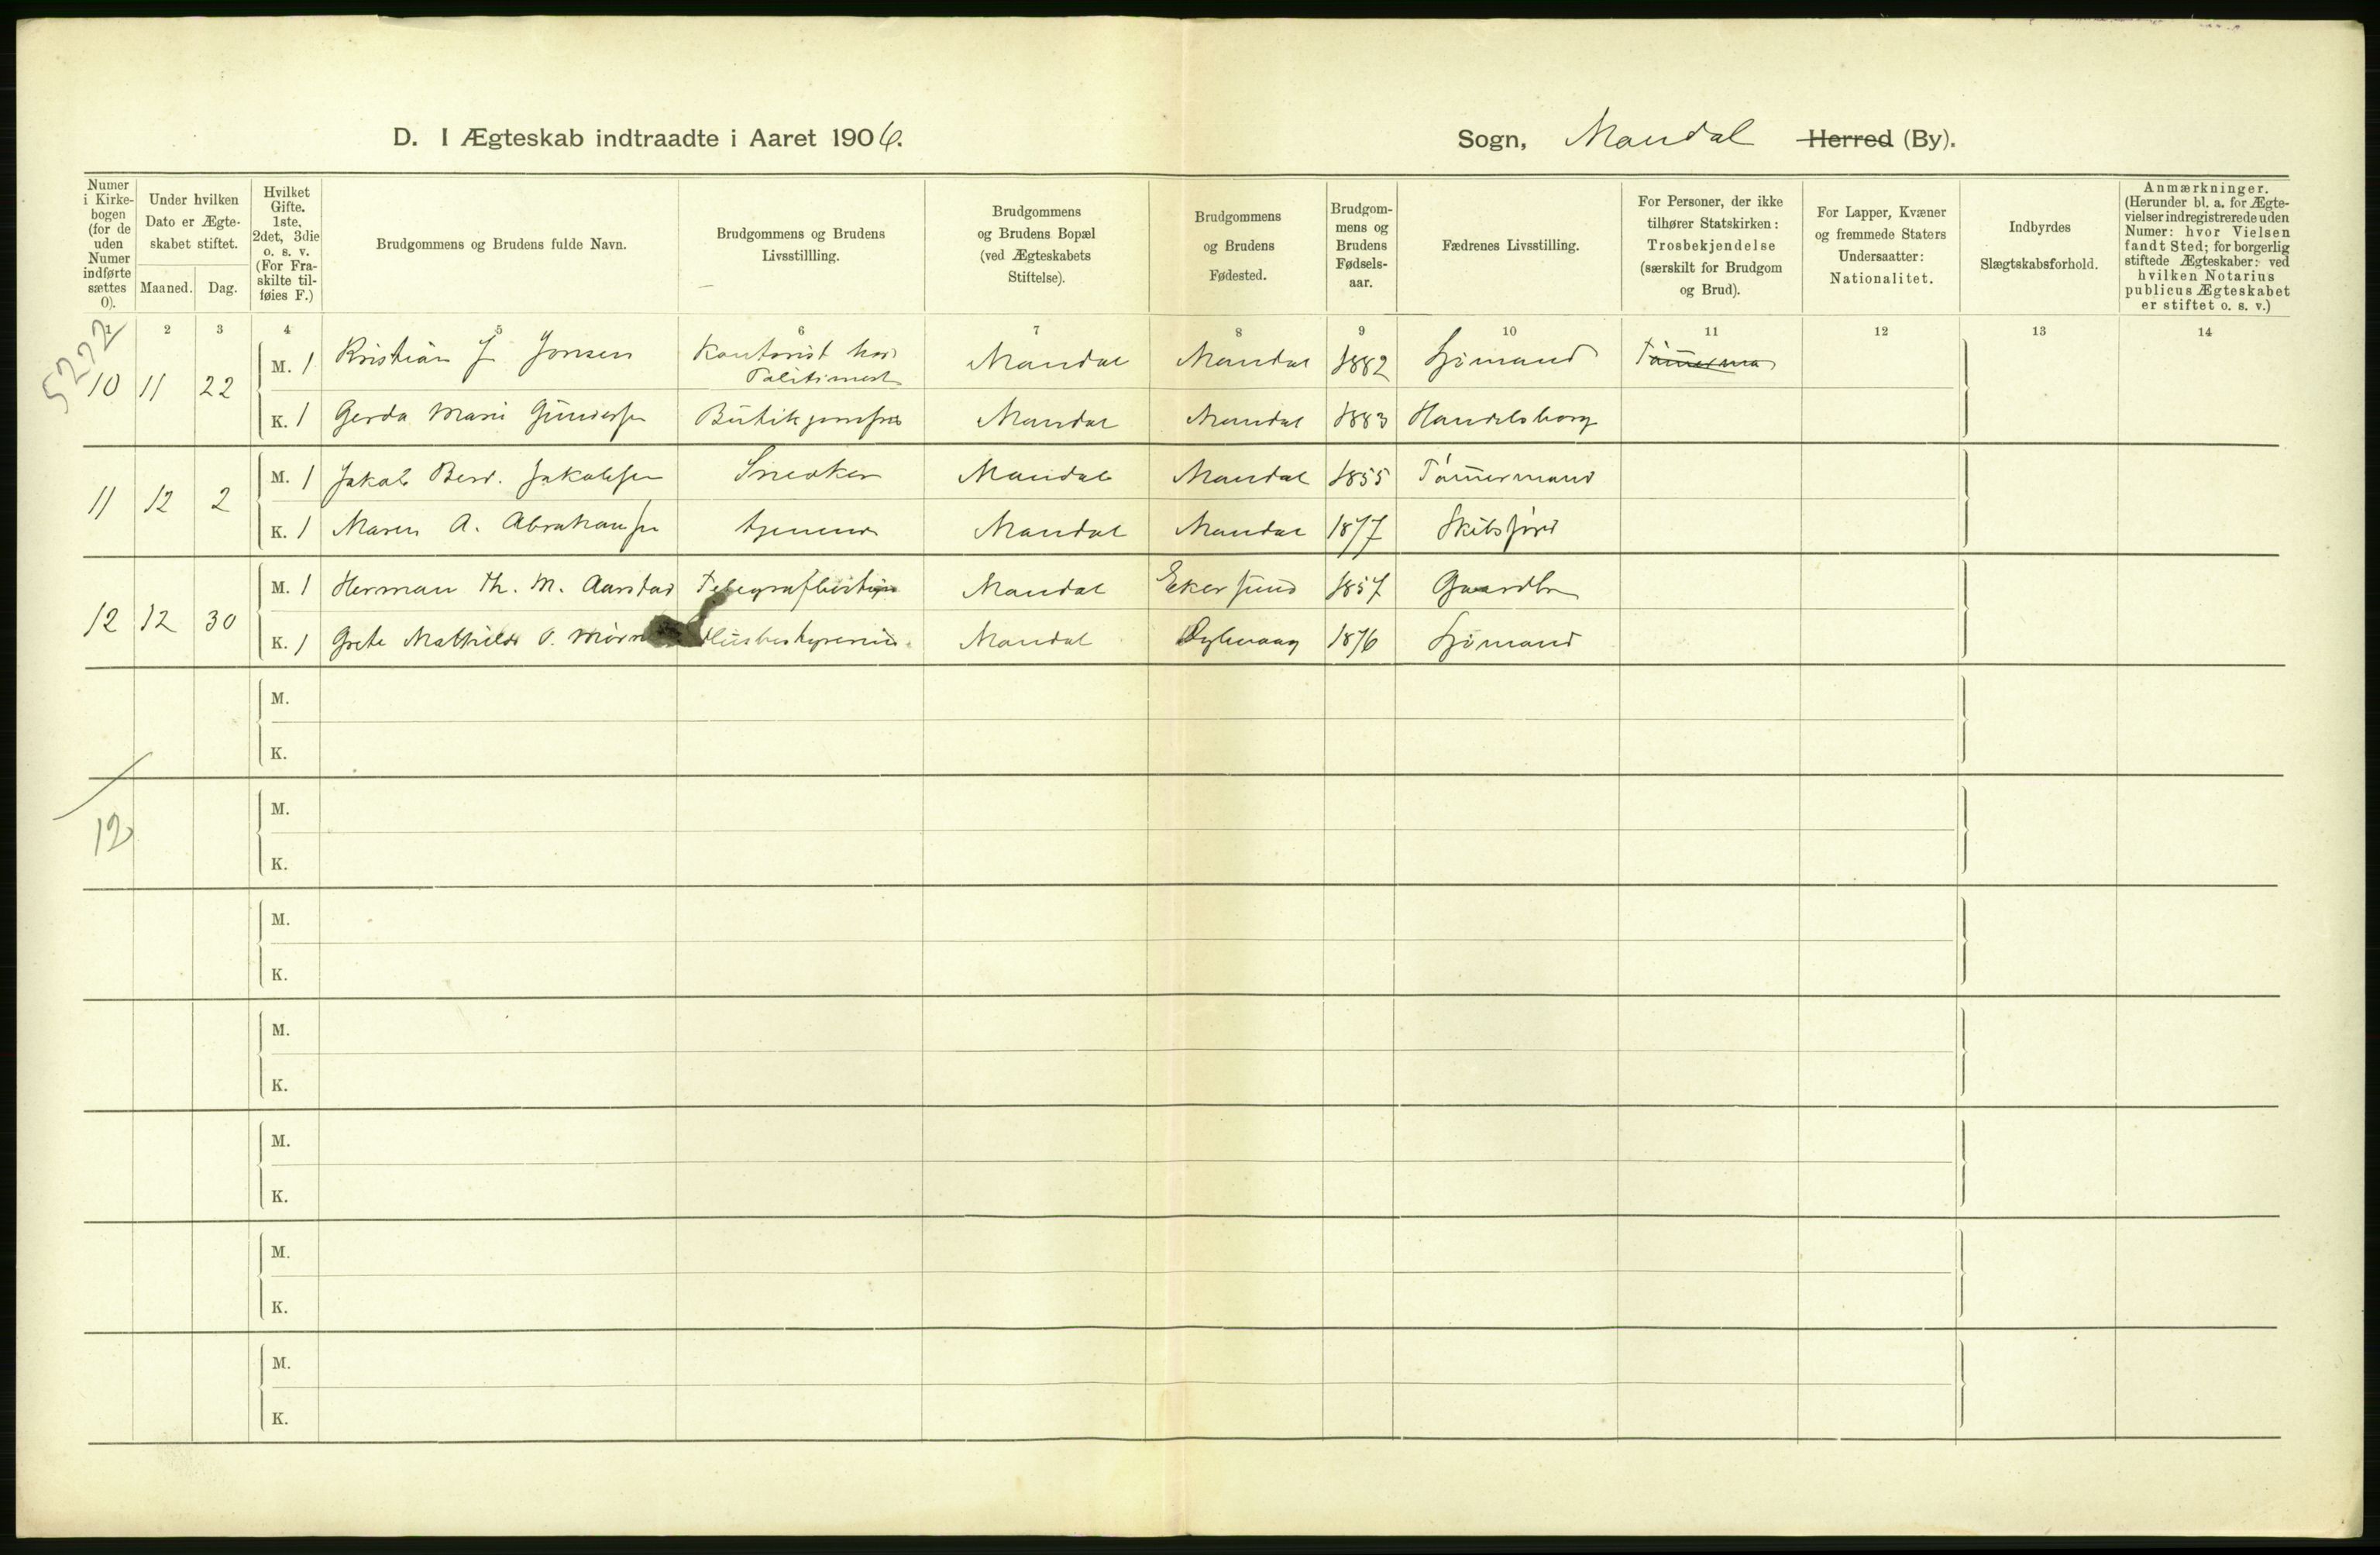 D. I Ægteskab indtraadte i Aaret 1906.
Sogn, Mandal Herred (By).
Numer i Kirkebogen (for de uden Numer indførte sættes 0).
Under hvilken Dato er Ægteskabet stiftet.
Maaned. Dag.
Hvilket Gifte. 1ste, 2det, 3die o. s. v. (For Fraskilte tilføies F.)
Brudgommens og Brudens fulde Navn.
Brudgommens og Brudens Livsstillling.
Brudgommens og Brudens Bopæl (ved Ægteskabets Stiftelse).
Brudgommens og Brudens Fødested.
Brudgommens og Brudens Fødselsaar.
Fædrenes Livsstilling.
For Personer, der ikke tilhører Statskirken: Trosbekjendelse (særskilt for Brudgom og Brud).
For Lapper, Kvæner og fremmede Staters Undersaatter: Nationalitet.
Indbyrdes Slægtskabsforhold.
Anmærkninger. (Herunder bl. a. for Ægtevielser indregistrerede uden Numer: hvor Vielsen fandt Sted; for borgerlig stiftede Ægteskaber: ved hvilken Notarius publicus Ægteskabet er stiftet o. s. v.)
1 2 3 4 5 6 7 8 9 10 11 12 13 14
10 11 22 M. 1 Kristian J Jonsen Kontorist hos Politimest Mandal Mandal 1882 Sjömand Tömmerma
K. 1 Gerda Marie Gundersen Butikjomfru Mandal Mandal 1883 Handelsborg
11 12 2 M. 1 Jakob Bernt. Jakobsen Snedker Mandal Mandal 1855 Tömmermand
K. 1 Maren A. Abrahamsen tjenende Mandal Mandal 1877 Skibsförer
12 12 30 M. 1 Herman Th. M. Aarstad Telegrafbestyr Mandal Ekersund 1857 Gaardbr
K. 1 Grete Mathilde O. Husbestyrerinde Mandal Dybvaag 1876 Sjömand
M.
K.
M.
12
K.
M.
K.
M.
K.
M.
K.
M.
K.
M.
K.